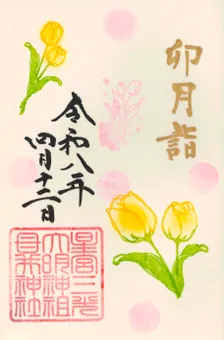 卯月詣
令和八年
四月十二日
星宮三光
大明神祖
母井神社